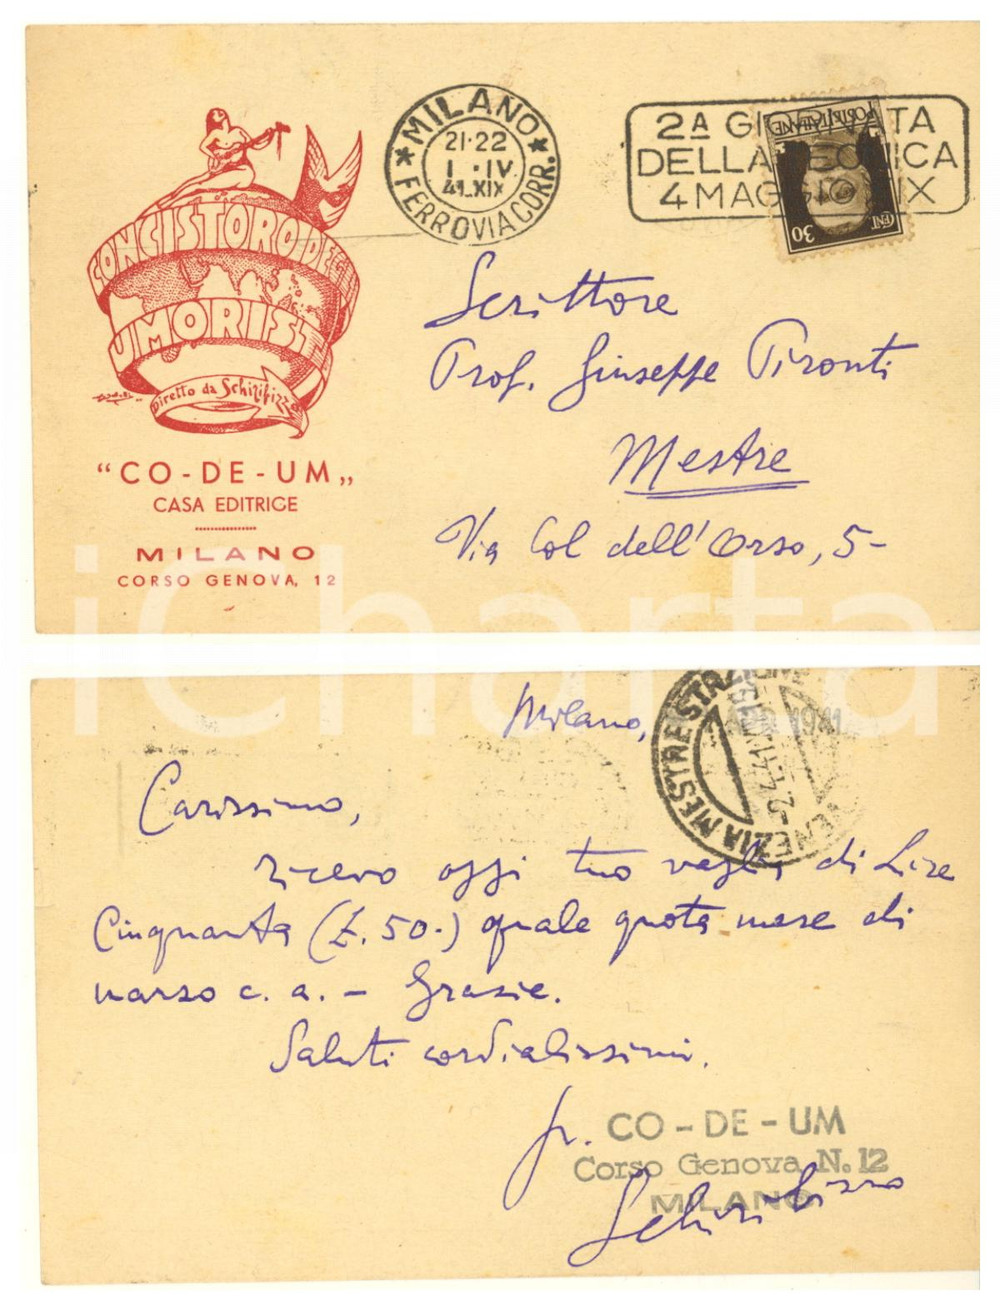 CONCISTORO DEGLI
UMORISTI
Diretto da Schizibizzo
"CO-DE-UM„
CASA EDITRICE
MILANO
CORSO GENOVA, 12
* MILANO *
21·22
I · IV
41.XIX
FERROVIA CORR.
2A GIORNATA
DELLA TECNICA
4 MAGGIO XIX
POSTE ITALIANE
CENT 30
Scrittore
Prof. Giuseppe Pironti
Mestre
Via Col dell'Orso, 5-
iCharta
Milano,
APR 1941
VENEZIA MESTRE
2.4.41
Carissimo,
ricevo oggi tuo vaglia di Lire
Cinquanta (£. 50.-) quale quota mese di
marzo c. a. - Grazie.
Saluti cordialissimi.
CO-DE-UM
Corso Genova N. 12
MILANO